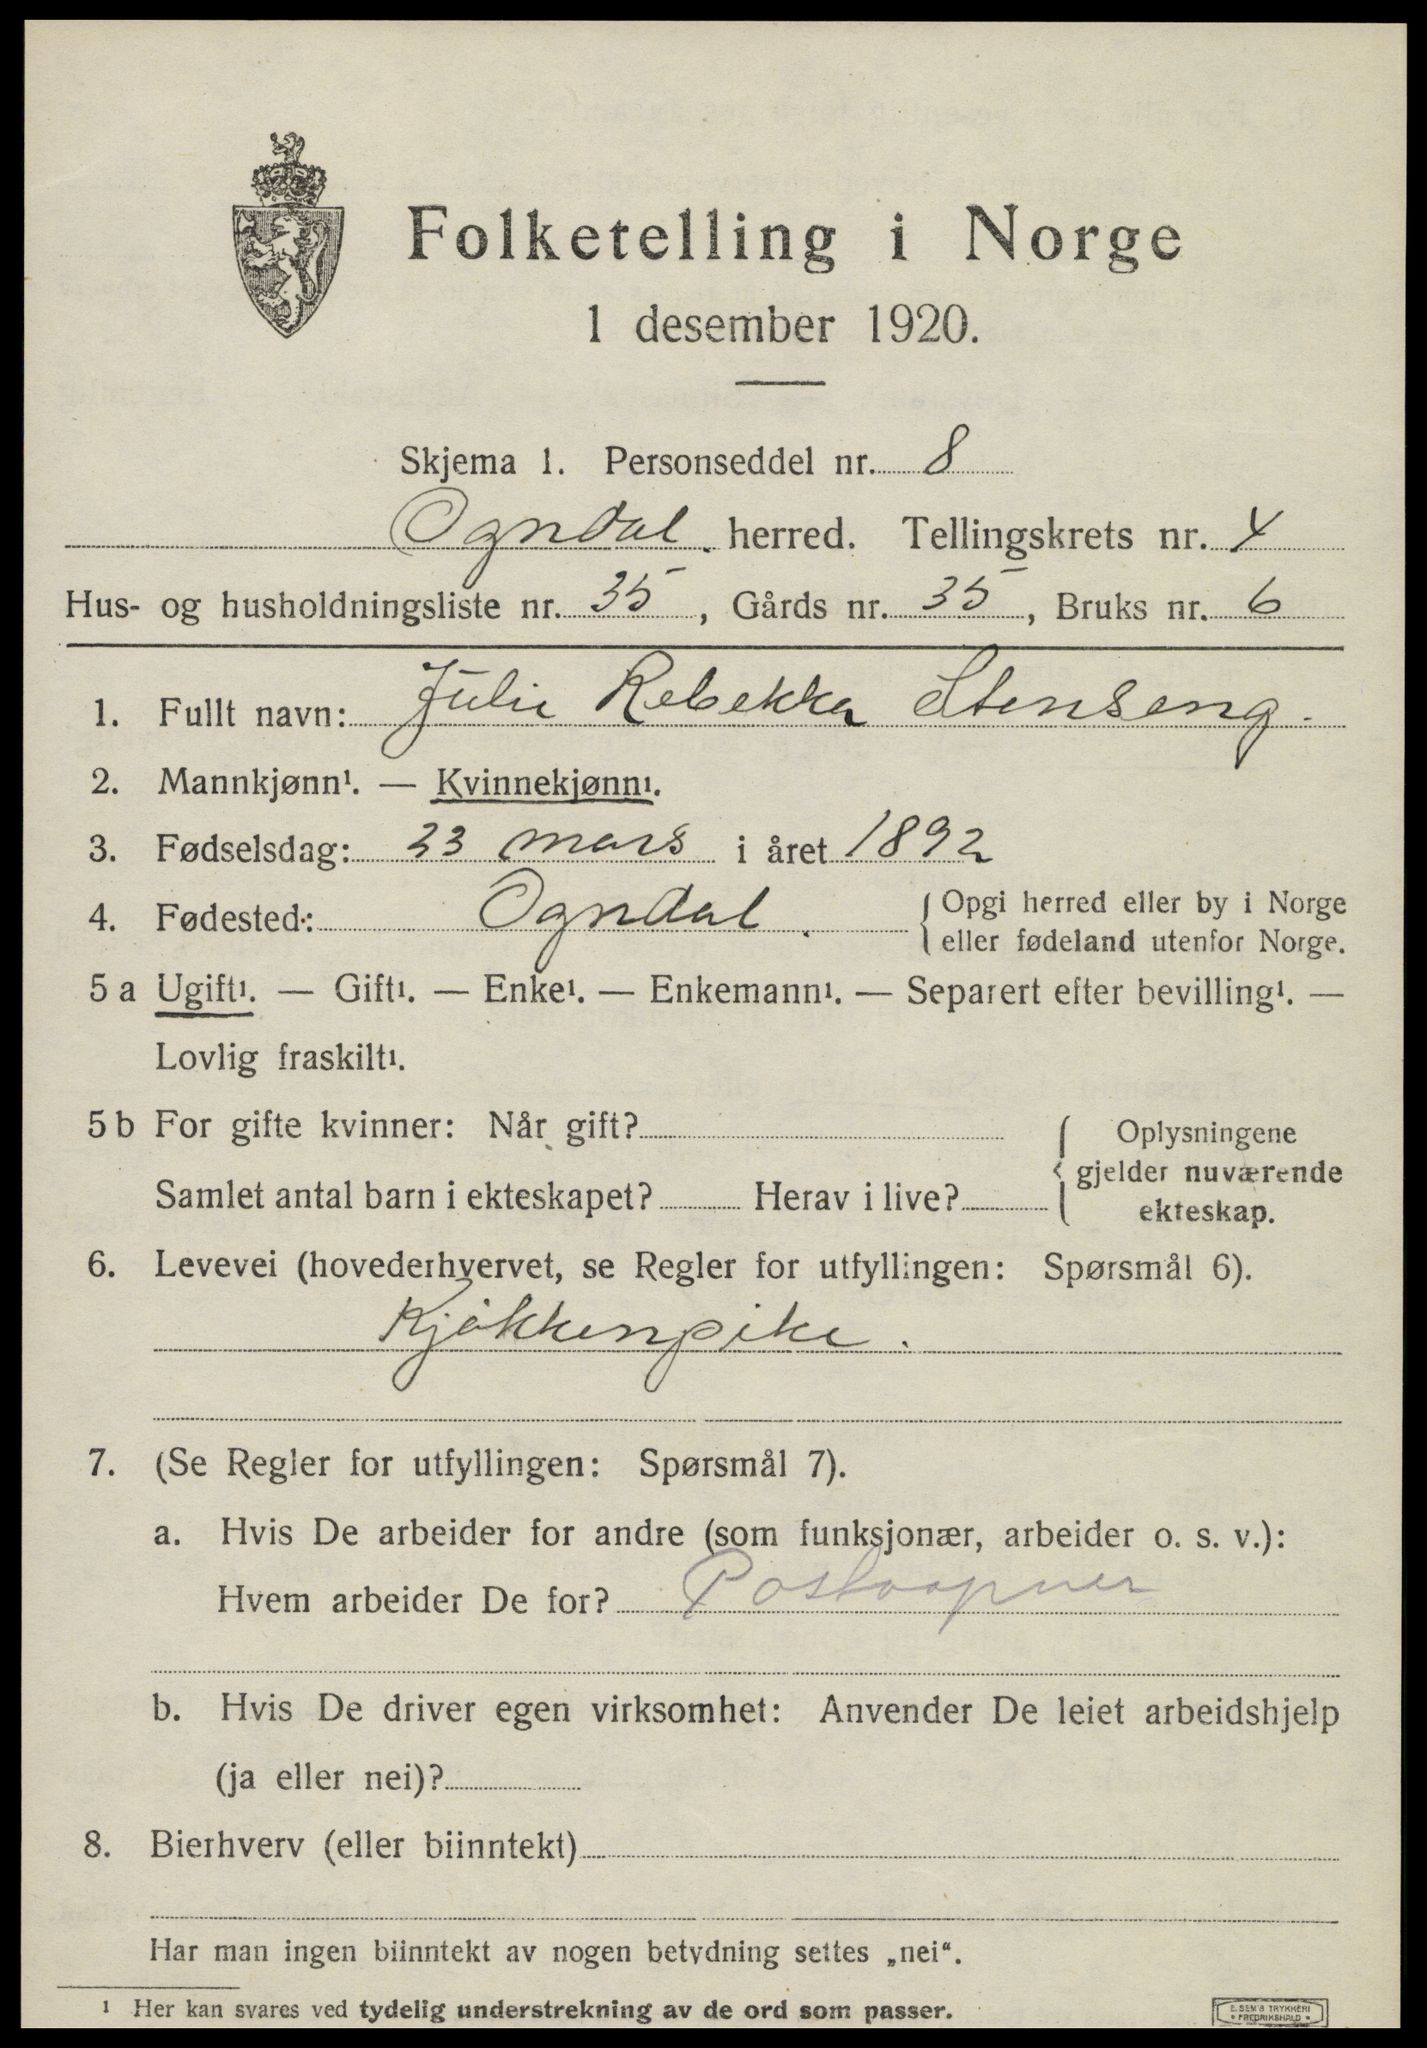 Folketelling i Norge
1 desember 1920.
Skjema 1. Personseddel nr. 8
Ogndal. herred. Tellingskrets nr. 4
Hus- og husholdningsliste nr. 35, Gårds nr. 35, Bruks nr. 6
1. Fullt navn: Julie Rebekka Stenseng.
2. Mannkjønn¹. — Kvinnekjønn¹.
3. Fødselsdag: 23 mars i året 1892
4. Fødested: Ogndal. { Opgi herred eller by i Norge
eller fødeland utenfor Norge.
5 a Ugift¹. — Gift¹. — Enke¹. — Enkemann¹. — Separert efter bevilling¹. —
Lovlig fraskilt¹.
5 b For gifte kvinner: Når gift?
Samlet antal barn i ekteskapet? Herav i live?
{ Oplysningene
gjelder nuværende
ekteskap.
6. Levevei (hovederhvervet, se Regler for utfyllingen: Spørsmål 6).
Kjøkkenpike.
7. (Se Regler for utfyllingen: Spørsmål 7).
a. Hvis De arbeider for andre (som funksjonær, arbeider o. s. v.):
Hvem arbeider De for? Postaapner
b. Hvis De driver egen virksomhet: Anvender De leiet arbeidshjelp
(ja eller nei)?
8. Bierhverv (eller biinntekt)
Har man ingen biinntekt av nogen betydning settes „nei“.
¹ Her kan svares ved tydelig understrekning av de ord som passer.
E. SEM'S TRYKKERI
* FREDRIKSHALD *